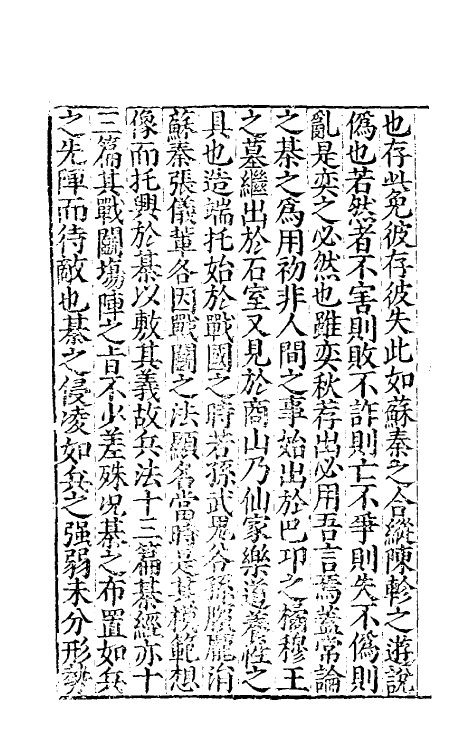 也存此免彼存彼失此如蘇秦之合縱陳軫之遊說
偽也若然者不害則敗不詐則亡不爭則失不偽則
亂是奕之必然也雖奕秋荐出必用吾言焉蓋常論
之棊之為用初非人間之事始出於巴卭之橘穆王
之墓繼出於石室又見於商山乃仙家樂道養性之
具也造端托始於戰國之時若孫武鬼谷孫臏龐涓
蘇秦張儀輩各因戰鬭之法顯名當時是其模範想
像而托興於棊以敷其義故兵法十三篇棊經亦十
三篇其戰鬭塲陣之旨不少差殊况棊之布置如兵
之先陣而待敵也棊之侵凌如兵之强弱未分形勢